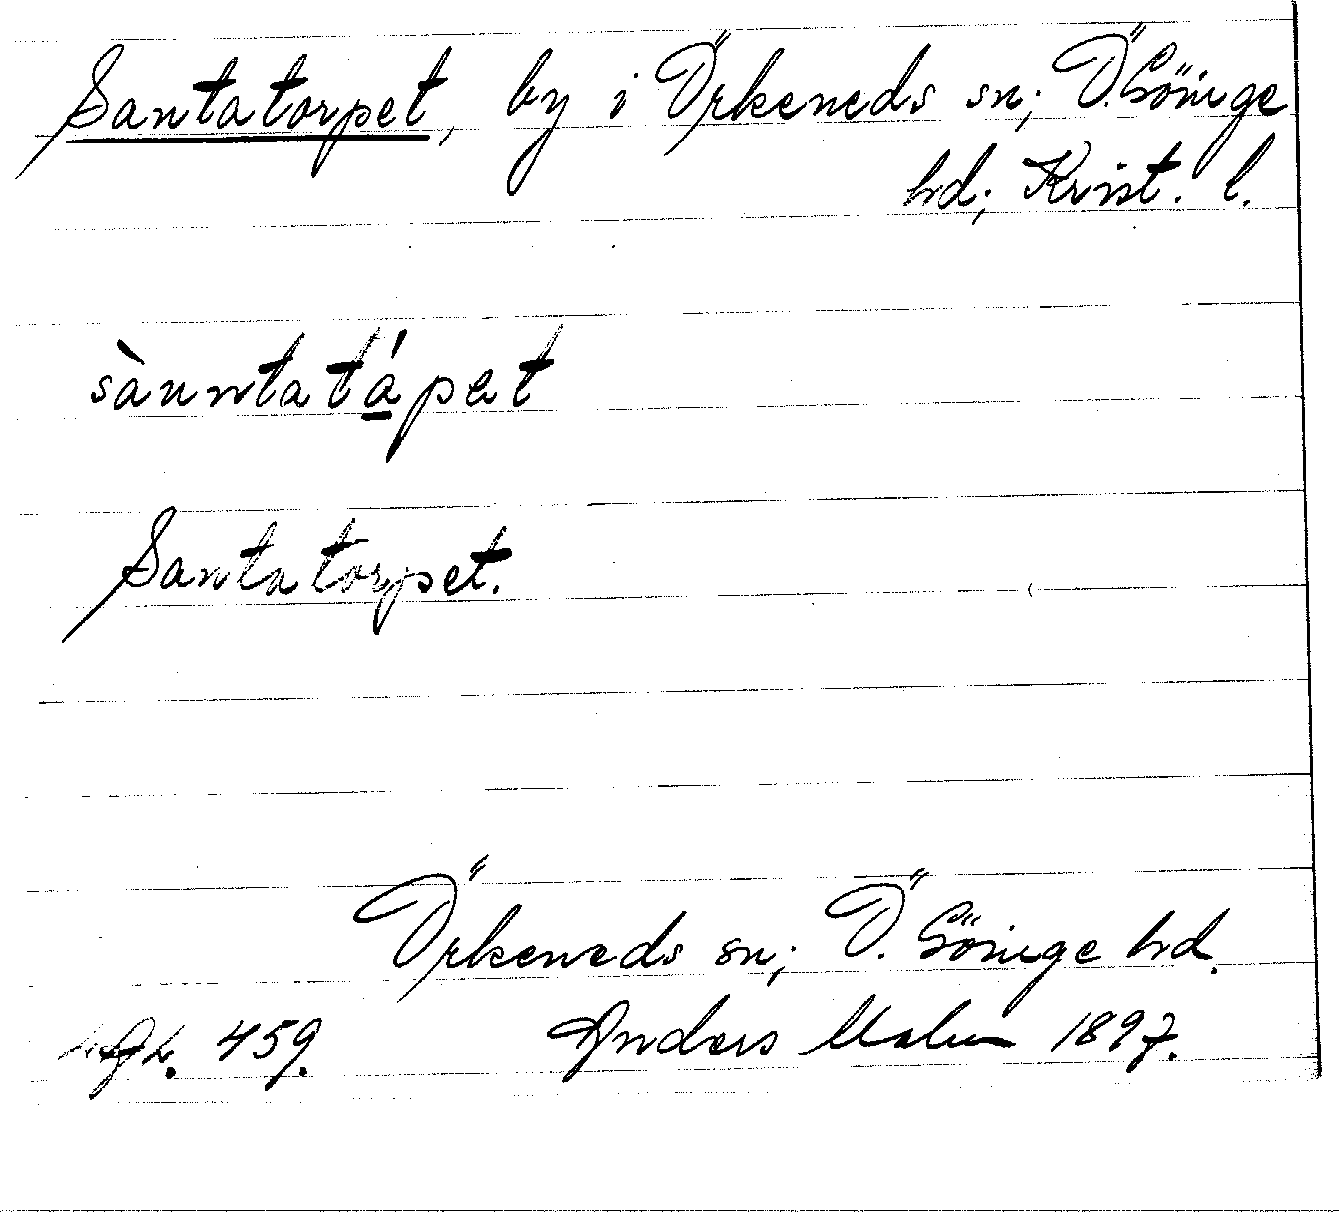 Santatorpet, by i Örkeneds sn; Ö. Göinge
hd; Krist. l.
sànntatápet
Santatorpet.
Örkeneds sn; Ö. Göinge hd.
459. Anders Malm 1897.